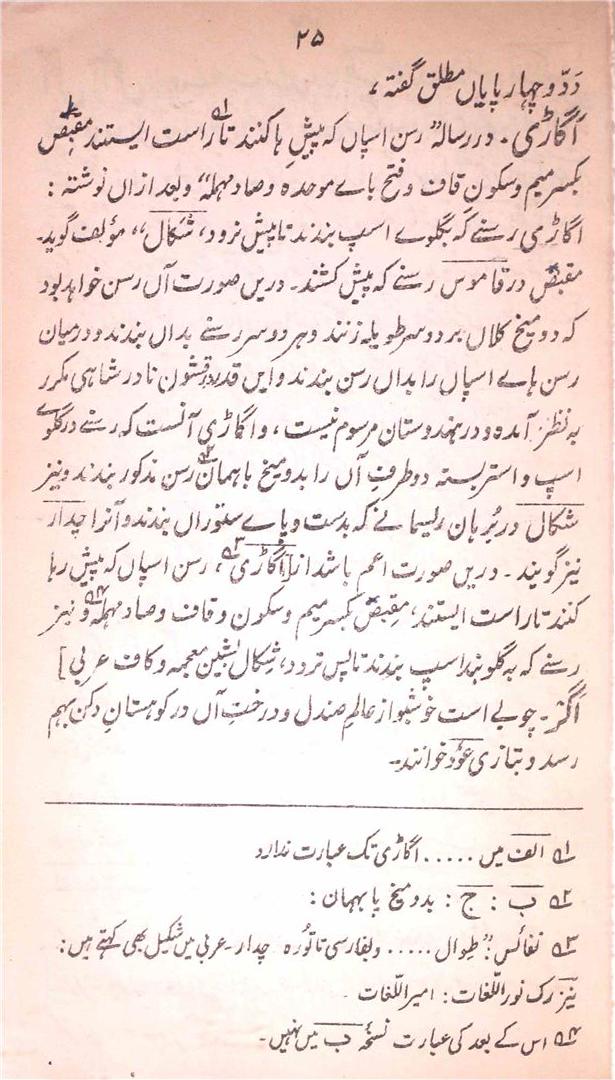 ۲۵
دَدّ و چہار پایاں مطلق گفتہ،
اَگاڑی۔ در رسالہ" رسن اسپاں کہ پیشِ ہا کنند تا راست ایستند مِقبَص
بکسر میم و سکونِ قاف و فتح باے موحدہ و صاد مہملہ" و بعد ازاں نوشتہ:
اگاڑی رسنے کہ بگلوے اسپ بندند تا پیش نرود، شکال،، مؤلف گوید۔
مقبص در قاموس رسنے کہ پیش کشند۔ دریں صورت آں رسن خواہد بود
کہ دو میخ کلاں بر دو سر طویلہ زنند و ہر دو سر رسنے بداں بندند و درمیان
رسن ہاے اسپاں را بداں رسن بندند و ایں قدر در قشون نادر شاہی مکرر
بہ نظر آمدہ و در ہندوستان مرسوم نیست، و اگاڑی آنست کہ رسنے در گلوے
اسپ و استر بستہ دو طرفِ آں را بدو میخ با ہماں رسن مذکور بندند و نیز
شکال در بُرہان ریسمانے کہ بدست و پاے ستوراں بندند و آنرا چدار
نیز گویند۔ دریں صورت اعم باشد از [اگاڑی ۳ہ، رسن اسپاں کہ پیش رہا
کنند تا راست ایستند، مِقبَص بکسر میم و سکون و قاف و صاد مہملہ ۴ہ و نیز
رسنے کہ بہ گلو بند اسپ بندند تا پس نرود، شِکال بشین معجمہ و کاف عربی]
اَگَر۔ چوبے است خوشبو از عالمِ صندل و درختِ آں در کوہستانِ دکن بہم
رسد و بتازی عوُد خوانند۔
۱ہ الف میں ..... اگاڑی تک عبارت ندارد
۲ہ ب: ج: بدو میخ پا بہماں:
۳ہ نفائس: "طِوال ..... و بفارسی تاتُورہ چدار۔ عربی میں شکیل بھی کہتے ہیں:
نیز رک نور اللّغات: امیر اللّغات
۴ہ اس کے بعد کی عبارت نسخۂ ب میں نہیں۔